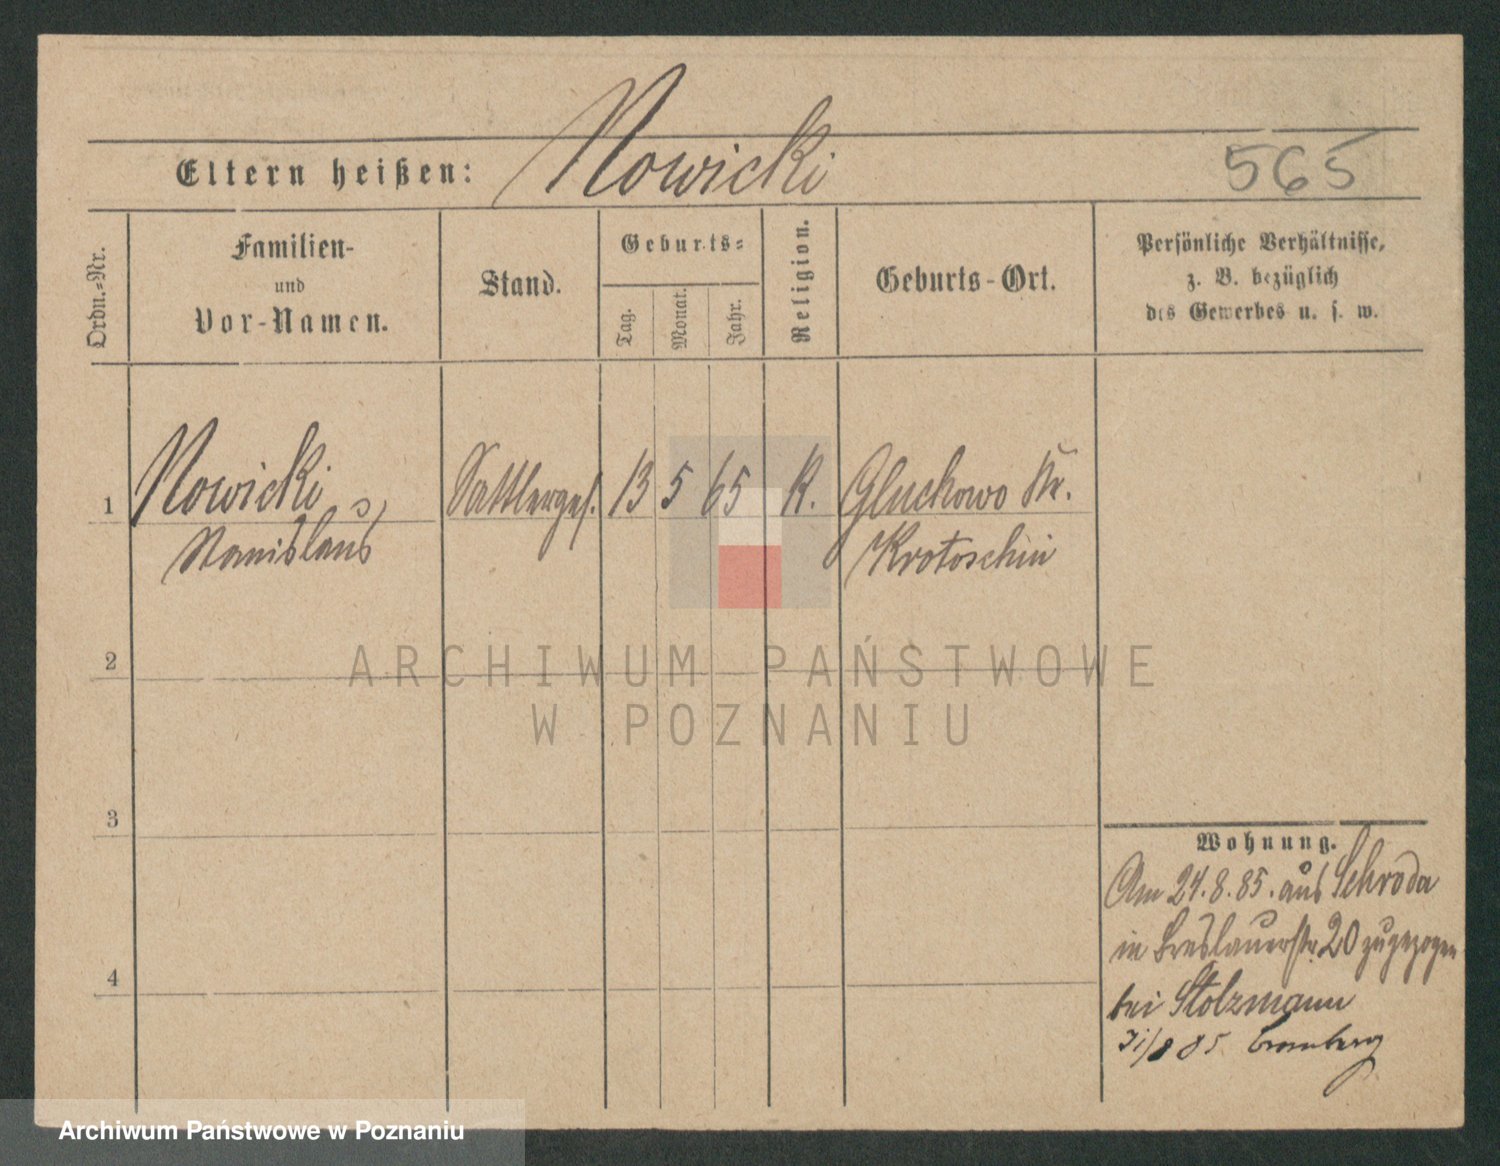 Eltern heißen: Nowicki
565
Ordn.=Nr.
Familien-
und
Vor-Namen.
Stand.
Geburts=
Tag.
Monat.
Jahr.
Religion.
Geburts-Ort.
Persönliche Verhältnisse,
z. B. bezüglich
des Gewerbes u. s. w.
1 Nowicki Sattlerges. 13 5 65 K. Gluchowo Kr.
Stanislaus Krotoschin
2
3
4
Wohnung.
Am 24.8.85. aus Schroda
in Breslauerstr. 20 zugezogen
bei Stolzmann
85 Bromberg
ARCHIWUM PAŃSTWOWE
W POZNANIU
Archiwum Państwowe w Poznaniu